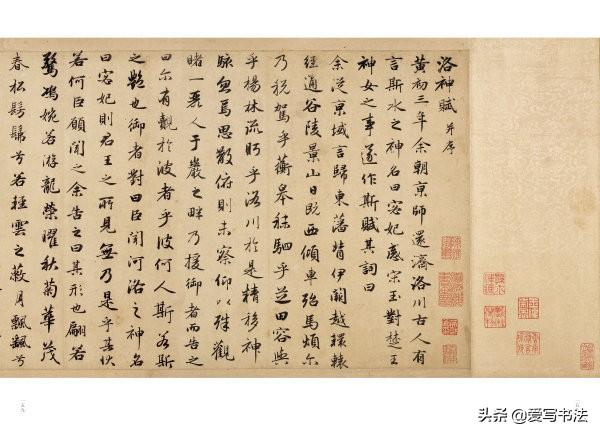 洛神賦 并序
黃初三年余朝京師還濟洛川古人有
言斯水之神名曰宓妃感宋玉對楚王
神女之事遂作斯賦其詞曰
余從京域言歸東藩背伊闕越轘轅
經通谷陵景山日既西傾車殆馬煩尔
乃稅駕乎蘅皋秣駟乎芝田容與
乎楊林流眄乎洛川於是精移神
駭忽焉思散俯則未察仰以殊觀
睹一麗人于巖之畔乃援御者而告之
曰尔有覿於彼者乎彼何人斯若斯
之艷也御者對曰臣聞河洛之神名
曰宓妃則君王之所見無乃是乎其狀
若何臣願聞之余告之曰其形也翩若
驚鴻婉若游龍榮曜秋菊華茂
春松髣髴兮若輕雲之蔽月飄飄兮
头条 @爱写书法